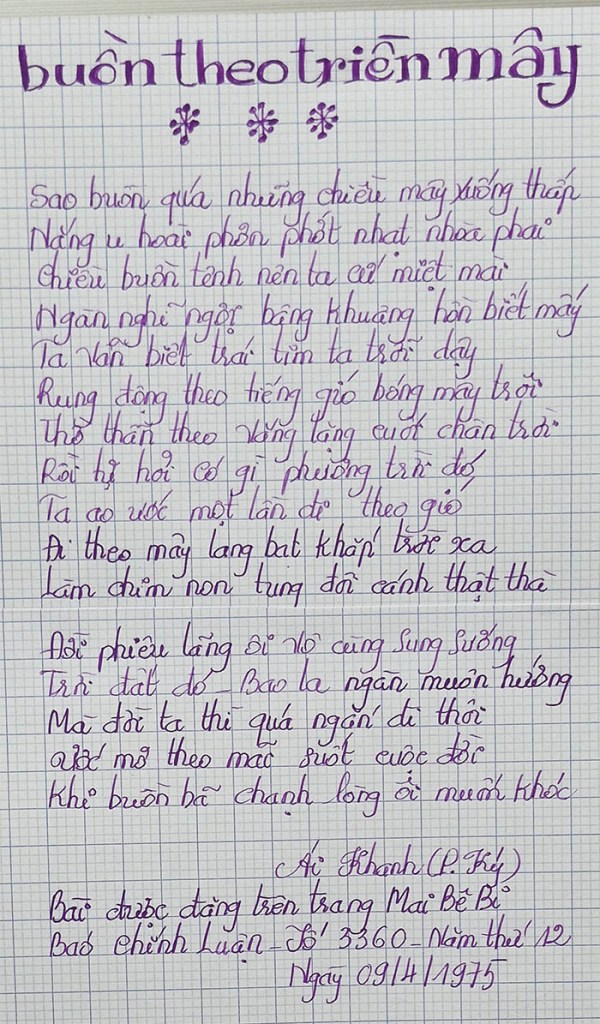 buồn theo triền mây
Sao buồn quá những chiều mây xuống thấp
Nắng u hoài phơn phớt nhạt nhòa phai
Chiều buồn tênh nên ta cứ miệt mài
Ngẫn nghĩ ngợi bâng khuâng hồn biết mấy
Ta vẫn biết trái tim ta trỗi dậy
Rung động theo tiếng gió bóng mây trôi
Thờ thẫn theo vầng trăng cuối chân trời
Rồi tự hỏi có gì phương trời đó
Ta ao ước một lần đi theo gió
Đi theo mây lang bạt khắp trời xa
Làm chim non tung đôi cánh thật thà
Đời phiêu lãng ôi vô cùng sung sướng
Trời đất đó - Bao la ngàn muôn hướng
Mà đời ta thì quá ngắn đi thôi
Ước mơ theo mãi suốt cuộc đời
Khi buồn bã chạnh lòng ôi muốn khóc
Ái Khanh (P. Ký)
Bài được đăng trên trang Mai Bê Bi
Báo Chính Luận - Số 3360 - Năm thứ 12
Ngày 09/4/1975